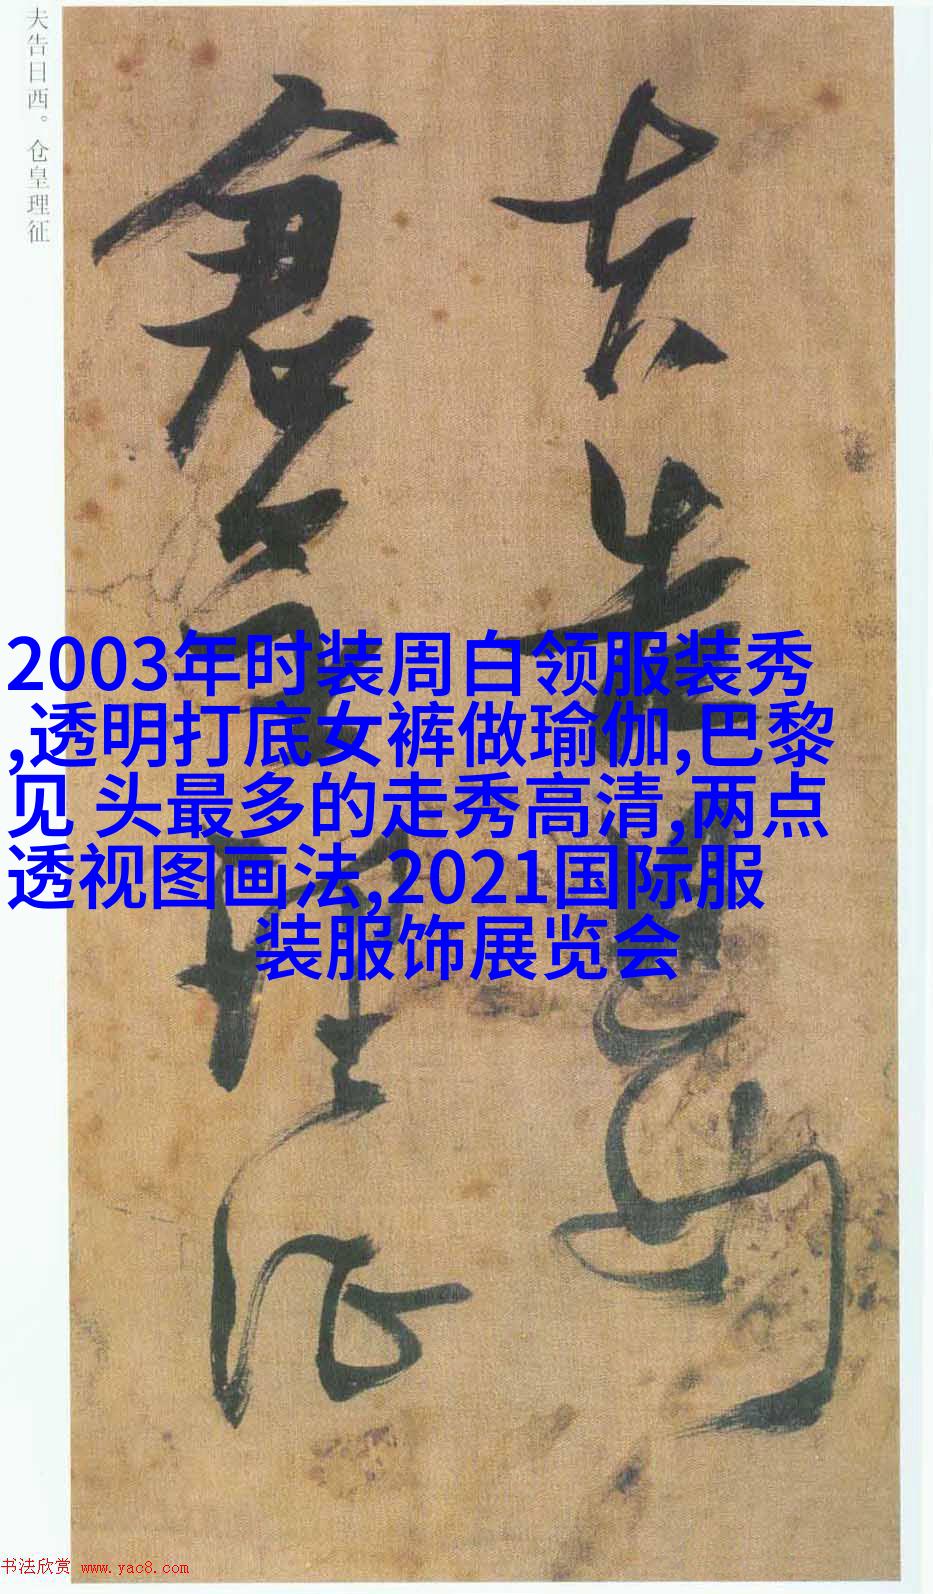 夫告日西。仓皇理征
2003年时装周白领服装秀
,透明打底女裤做瑜伽,巴黎
见 头最多的走秀高清,两点
透视图画法,2021国际服
装服饰展览会
书法欣赏 www.yac8.com